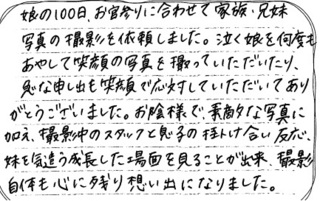 娘の100日、お宮参りに合わせて家族・兄妹
写真の撮影を依頼しました。泣く娘を何度も
あやして笑顔の写真を撮っていただいたり、
急な申し出も笑顔で応対していただいてあり
がとうございました。お陰様で、素敵な写真に
加え、撮影中のスタッフと息子の掛け合い反応、
妹を気遣う成長した場面を見ることが出来、撮影
自体も心に残り想い出になりました。